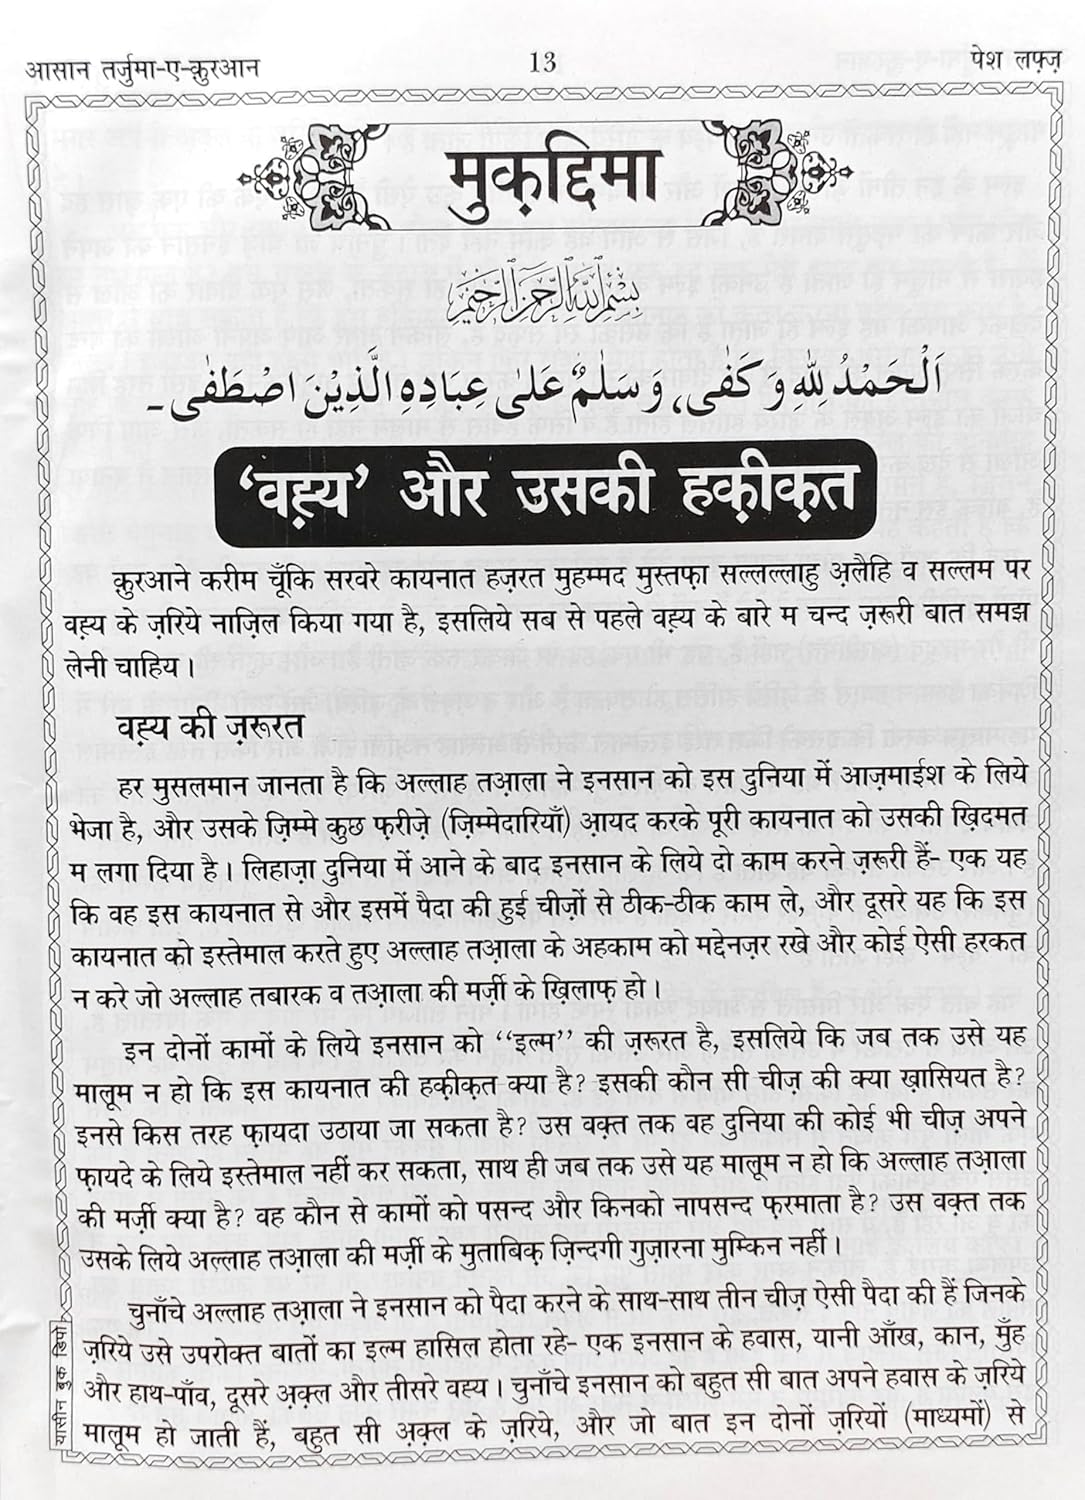 आसान तर्जुमा-ए-क़ुरआन
13
पेश लफ़्ज़
मुक़द्दिमा
بِسْمِ اللهِ الرَّحْمٰنِ الرَّحِيْمِ
اَلْحَمْدُ لِلّٰهِ وَ كَفٰى، وَ سَلٰمٌ عَلٰى عِبَادِهِ الَّذِيْنَ اصْطَفٰى۔
‘वह़्य’ और उसकी हक़ीक़त
क़ुरआने करीम चूँकि सरवरे कायनात हज़रत मुहम्मद मुस्तफ़ा सल्लल्लाहु अ़लैहि व सल्लम पर
वह़्य के ज़रिये नाज़िल किया गया है, इसलिये सब से पहले वह़्य के बारे म चन्द ज़रूरी बात समझ
लेनी चाहिय।
वह़्य की ज़रूरत
हर मुसलमान जानता है कि अल्लाह तआ़ला ने इनसान को इस दुनिया में आज़माईश के लिये
भेजा है, और उसके ज़िम्मे कुछ फ़रीज़े (ज़िम्मेदारियाँ) आ़यद करके पूरी कायनात को उसकी ख़िदमत
म लगा दिया है। लिहाज़ा दुनिया में आने के बाद इनसान के लिये दो काम करने ज़रूरी हैं- एक यह
कि वह इस कायनात से और इसमें पैदा की हुई चीज़ों से ठीक-ठीक काम ले, और दूसरे यह कि इस
कायनात को इस्तेमाल करते हुए अल्लाह तआ़ला के अहकाम को मद्देनज़र रखे और कोई ऐसी हरकत
न करे जो अल्लाह तबारक व तआ़ला की मर्ज़ी के ख़िलाफ़ हो।
इन दोनों कामों के लिये इनसान को ‘‘इल्म’’ की ज़रूरत है, इसलिये कि जब तक उसे यह
मालूम न हो कि इस कायनात की हक़ीक़त क्या है? इसकी कौन सी चीज़ की क्या ख़ासियत है?
इनसे किस तरह फ़ायदा उठाया जा सकता है? उस वक़्त तक वह दुनिया की कोई भी चीज़ अपने
फ़ायदे के लिये इस्तेमाल नहीं कर सकता, साथ ही जब तक उसे यह मालूम न हो कि अल्लाह तआ़ला
की मर्ज़ी क्या है? वह कौन से कामों को पसन्द और किनको नापसन्द फ़रमाता है? उस वक़्त तक
उसके लिये अल्लाह तआ़ला की मर्ज़ी के मुताबिक़ ज़िन्दगी गुज़ारना मुम्किन नहीं।
चुनाँचे अल्लाह तआ़ला ने इनसान को पैदा करने के साथ-साथ तीन चीज़ ऐसी पैदा की हैं जिनके
ज़रिये उसे उपरोक्त बातों का इल्म हासिल होता रहे- एक इनसान के हवास, यानी आँख, कान, मुँह
और हाथ-पाँव, दूसरे अ़क़्ल और तीसरे वह़्य। चुनाँचे इनसान को बहुत सी बात अपने हवास के ज़रिये
मालूम हो जाती हैं, बहुत सी अ़क़्ल के ज़रिये, और जो बात इन दोनों ज़रियों (माध्यमों) से
यासीन बुक डिपो